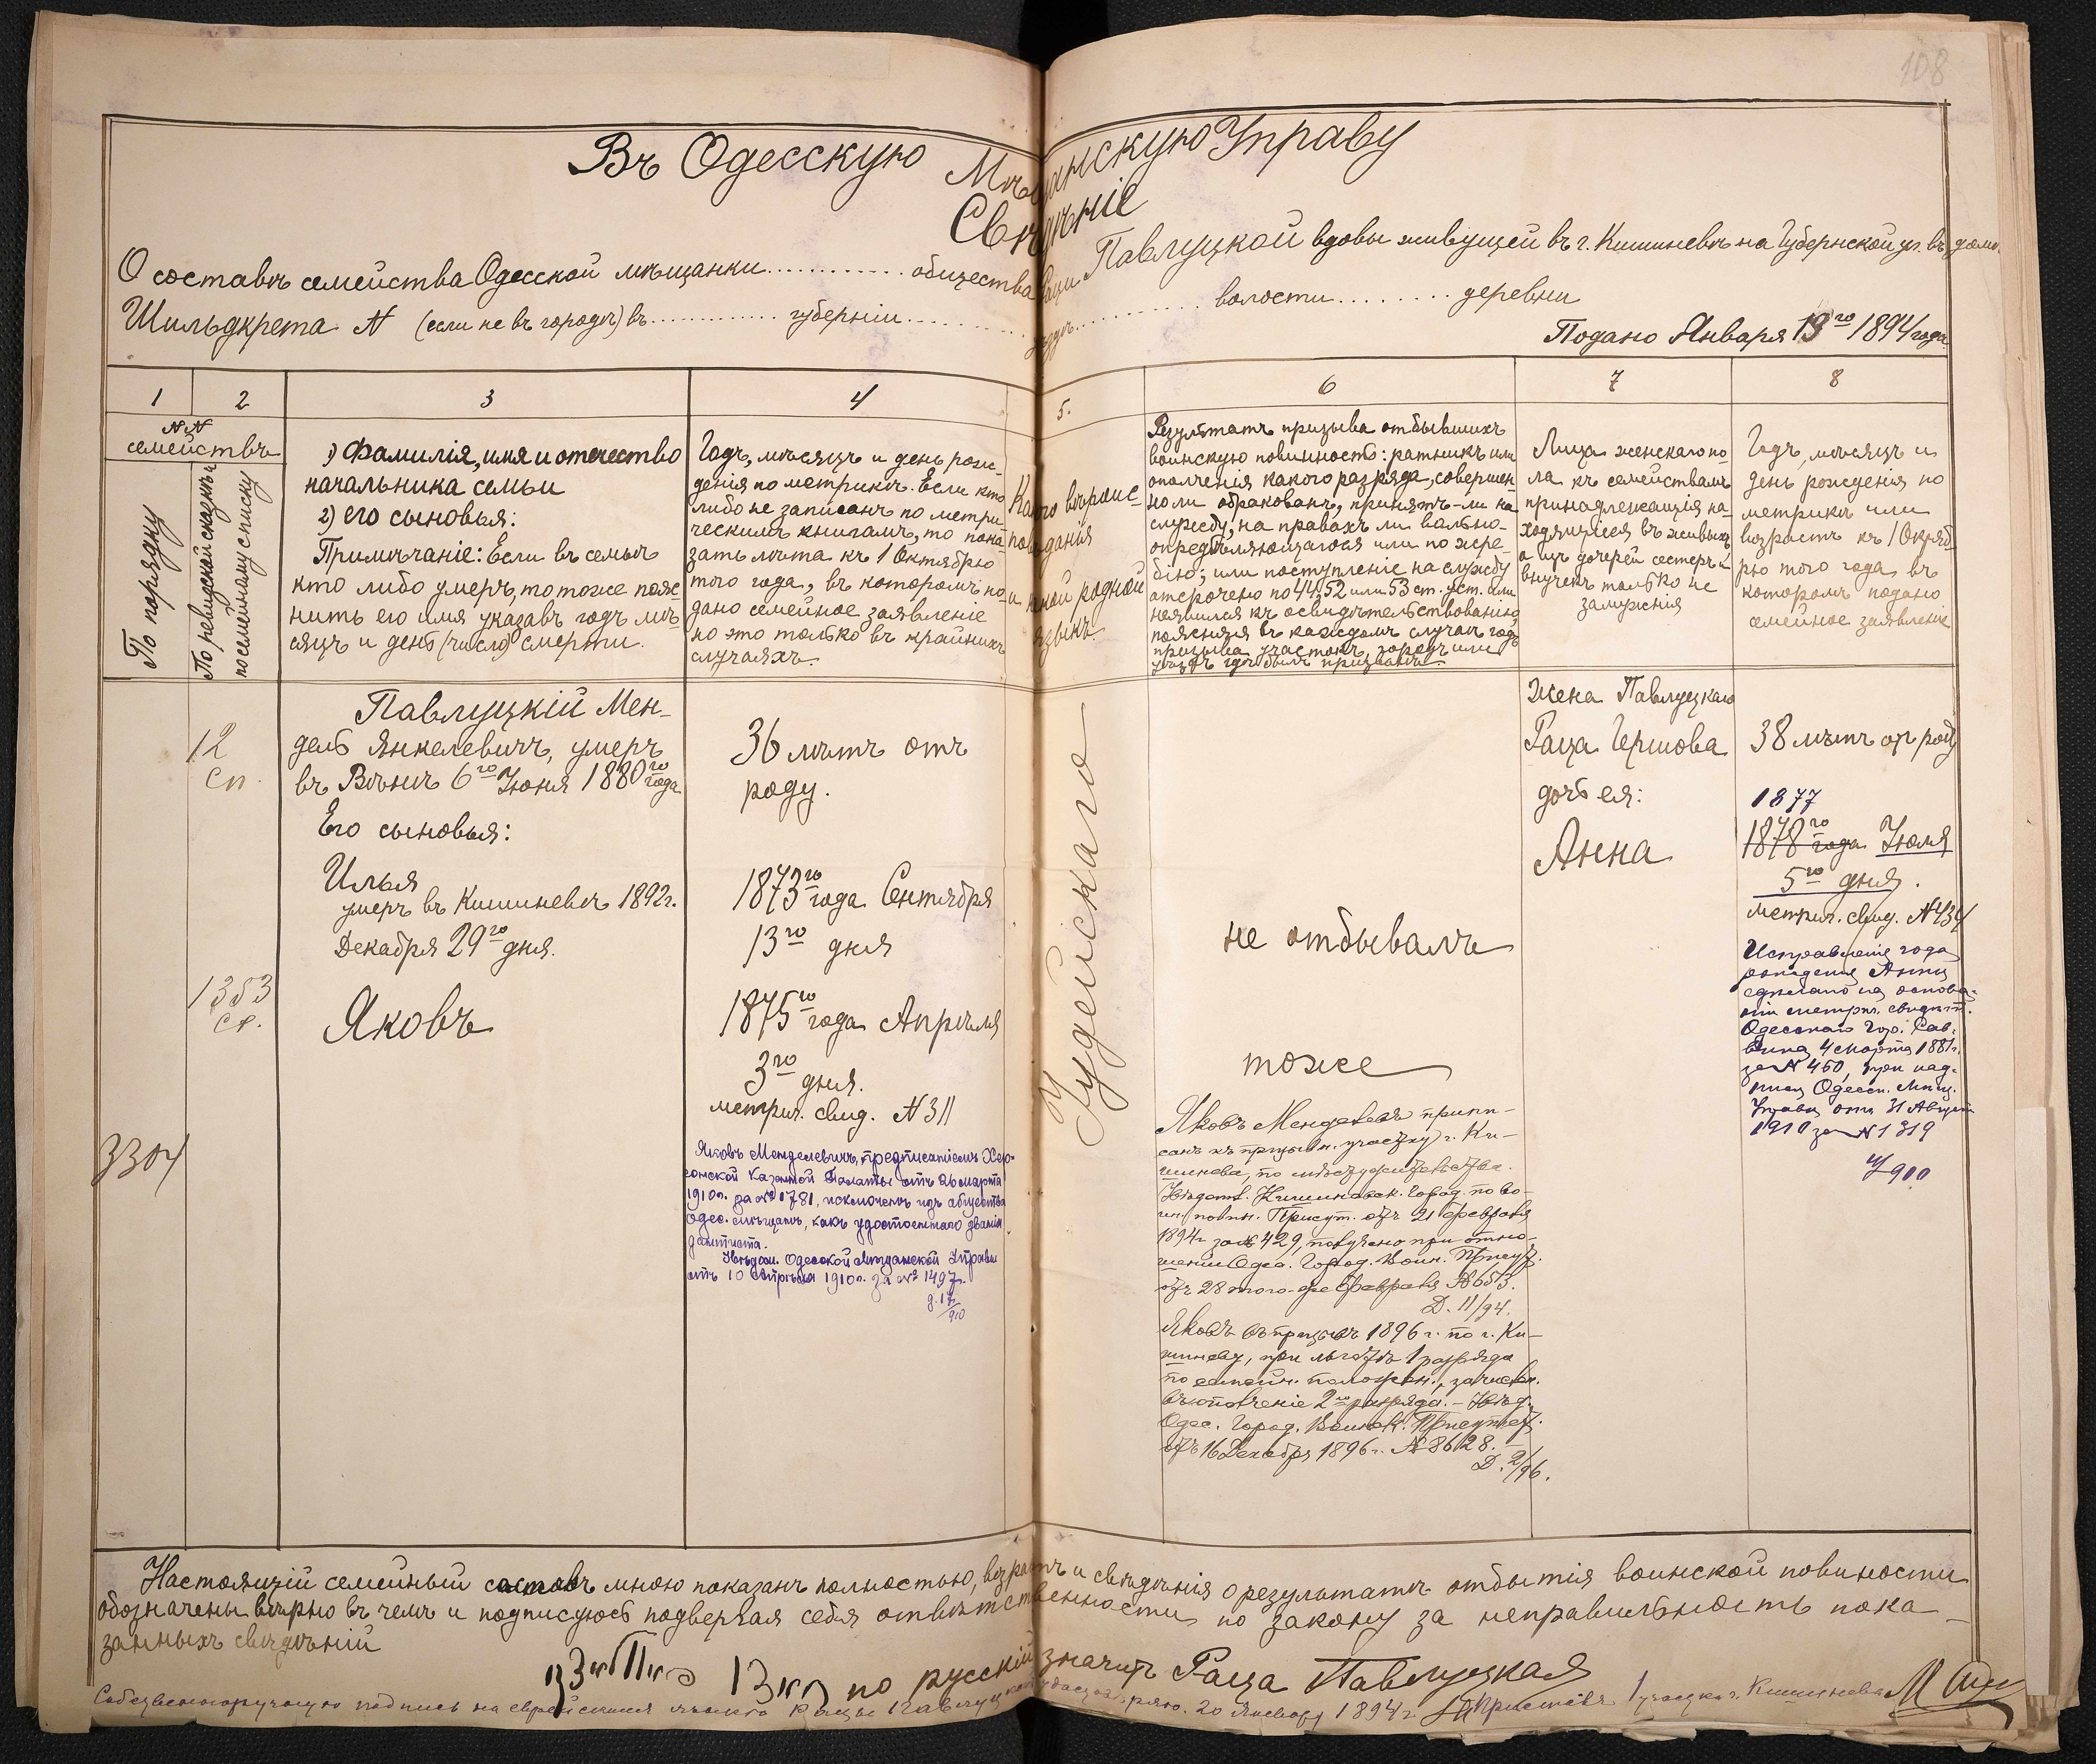 108
Въ Одесскую Мѣщанскую Управу
Свѣдѣніе
О составѣ семейства Одесской мѣщанки ............ общества Раци Павлуцкой вдовы живущей въ г. Кишиневѣ на Губернской ул. въ домѣ
Шильдкрета № (если не въ городѣ) въ ............ губерніи ............ уѣздѣ ............ волости ......... деревни
Подано Января 13го 1894 года
1 2 3 4 5. 6 7 8
№№
семействъ
По порядку
По ревизской сказкѣ и
посемейному списку
1) Фамилія, имя и отчество
начальника семьи
2) его сыновья:
Примѣчаніе: Если въ семьѣ
кто либо умеръ, то тоже пояс
нить его имя указавъ годъ мѣ-
сяцъ и день (число) смерти.
Годъ, мѣсяцъ и день рож-
денія по метрикѣ. Если кто
либо не записанъ по метри-
ческимъ книгамъ, то пока-
зать лѣта къ 1 Октябрю
того года, въ которомъ по-
дано семейное заявленіе
но это только въ крайнихъ
случаяхъ.
Какого вѣроис-
повѣданія
и какой родной
языкъ.
Результатъ призыва отбывшихъ
воинскую повинность: ратникъ или
ополченія какого разряда, совершен-
но ли обракованъ, принятъ-ли на
службу, на правахъ ли вольно-
опредѣляющагося или по жре-
бію; или поступленіе на службу
отсрочено по 44, 52 или 53 ст. уст. или
неявился къ освидѣтельствованію,
поясняя въ каждомъ случаѣ годъ
призыва участокъ, городъ или
уѣздъ гдѣ былъ призванъ
Лица женскаго по-
ла къ семействамъ
принадлежащія на-
ходящіяся въ живыхъ
а изъ дочерей сестеръ и
внучекъ только не
замужнія
Годъ, мѣсяцъ и
день рожденія по
метрикѣ или
возрастъ къ 1 Октяб-
рю того года въ
которомъ подано
семейное заявленіе
12
сп.
Павлуцкій Мен-
дель Янкелевичъ, умеръ
въ Вѣнѣ 6го Іюня 1880го года
36 лѣтъ отъ
роду.
Его сыновья:
Илья
умеръ въ Кишиневѣ 1892г.
Декабря 29го дня.
1873го года Сентября
13го дня
1353
сп.
Яковъ
1875го года Апрѣля
3го дня.
метрич. свид. № 311
3304
Яковъ Менделевичъ, предписаніемъ Хер-
сонской Казенной Палаты отъ 26 марта
1910г. за № 1781, исключенъ изъ общества
Одес. мѣщанъ, какъ удостоеннаго званія
дантиста.
Увѣдом. Одесской Мѣщанской Управы
отъ 10 Апрѣля 1910г. за № 1497.
д. 17/910
Іудейскаго
не отбывалъ
тоже
Яковъ Менделевъ припи-
санъ къ призывн. участку г. Ки-
шинева, по мѣсту жительства.
Увѣдомл. Кишиневск. Город. по во-
ин. повин. Присут. отъ 21 февраля
1894г. за № 429, получено при отно-
шеніи Одес. Город. Воин. Присут.
отъ 28 того-же февраля № 653.
Д. 11/94.
Яковъ въ призывъ 1896 г. по г. Ки-
шиневу, при льготѣ 1 разряда
по семейн. положен., зачислен.
въ ополченіе 2го разряда. – Увѣд.
Одес. Город. Воинск. Присутств.
отъ 16 Декабря 1896г. № 8628.
Д. 2/96.
Жена Павлуцкаго
Раца Гершова
38 лѣтъ от роду
дочь ея:
Анна
1877
1878го года Іюля
5го дня.
метрич. свид. № 434
Исправленіе года
рожденія Анны
сдѣлано на основа-
ніи метрич. свидѣт.
Одесскаго Гор. Рав-
вина 4 марта 1881г.
за № 450, при над-
писи Одесск. Мѣщ.
Управы отъ 31 Августа
1910 за № 1319
Настоящій семейный составъ мною показанъ полностью, возрастъ и свѣдѣнія о результатѣ отбытія воинской повинности
обозначены вѣрно въ чемъ и подписуюсь подвергая себя отвѣтственности по закону за неправильность пока-
занныхъ свѣдѣній
по русскій значитъ Раца Павлуцкая
Собственноручную подпись на еврейскомъ языкѣ Рацы Павлуцкой удостовѣряю. 20 Января 1894г. Приставъ 1 участка г. Кишинева